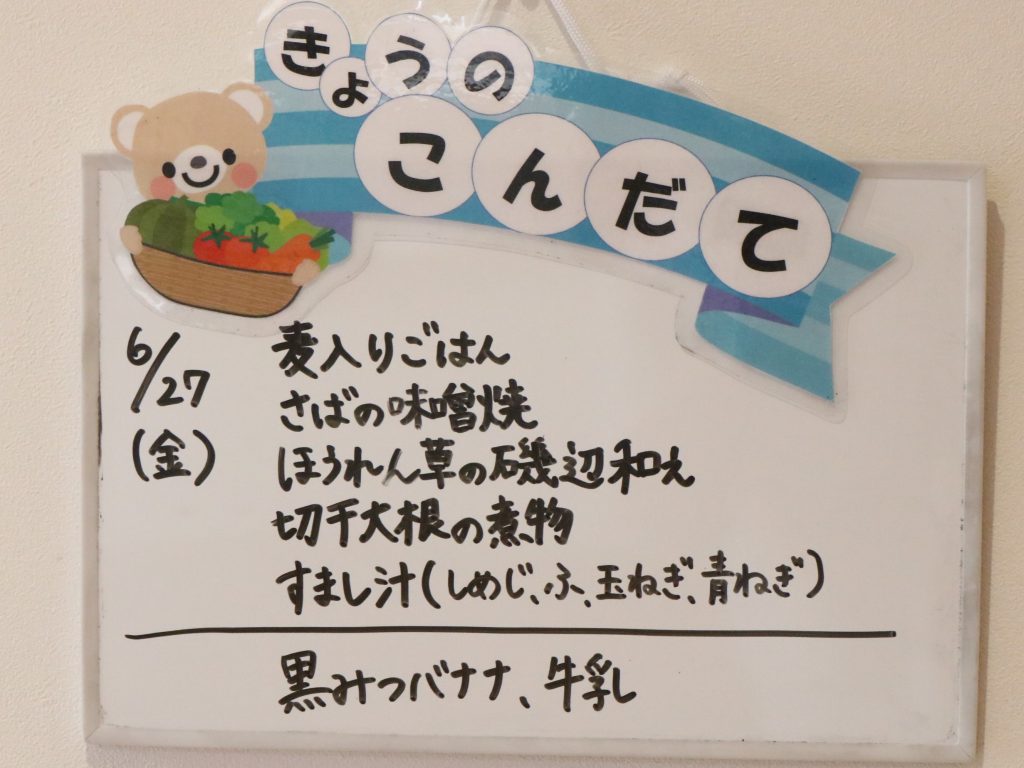 きょうの
こんだて
6/27
(金)
麦入りごはん
さばの味噌焼
ほうれん草の磯辺和え
切干大根の煮物
すまし汁(しめじ、ふ、玉ねぎ、青ねぎ)
黒みつバナナ、牛乳